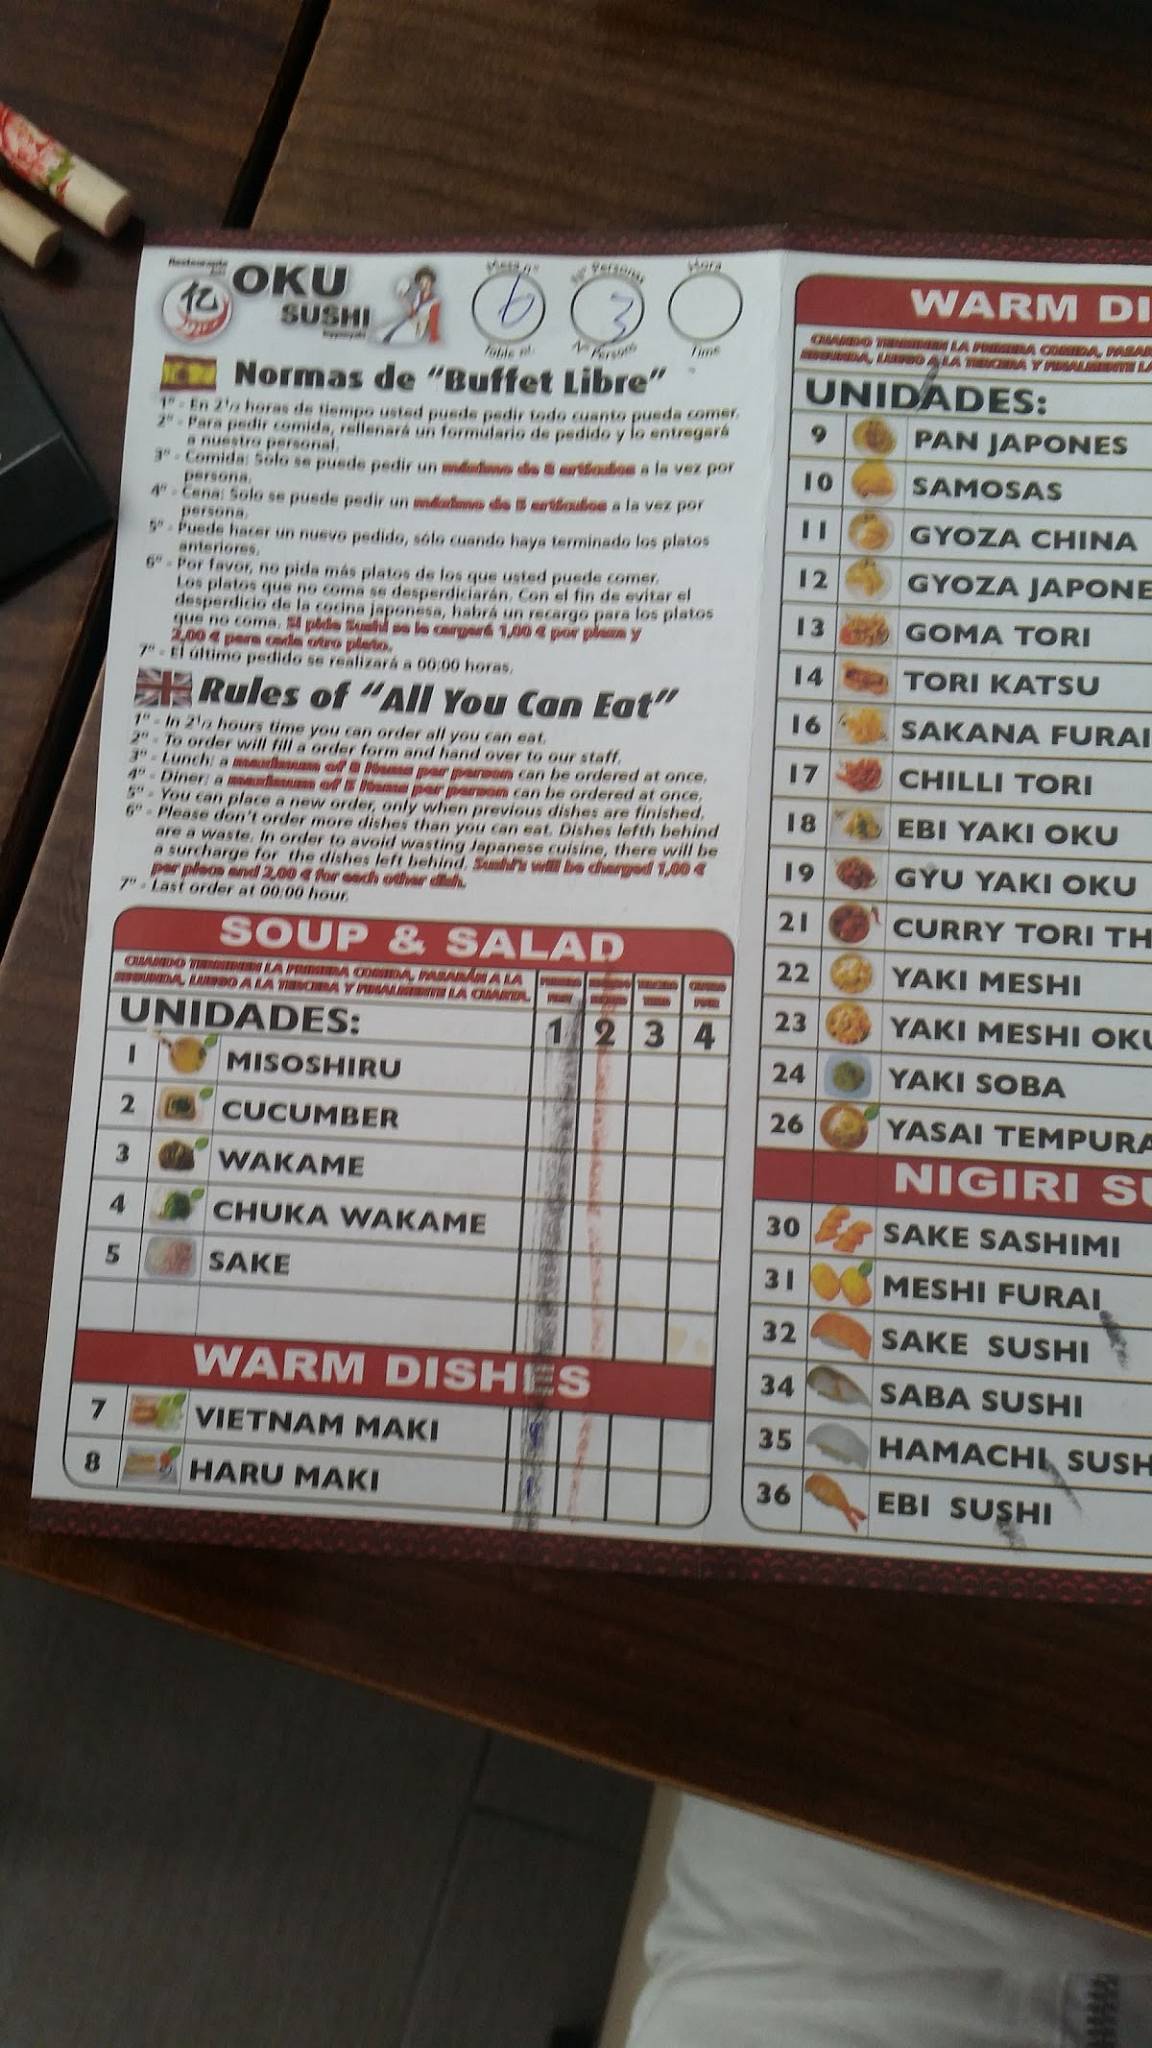 Restaurante
OKU
SUSHI
亿
Mesa nº
6
Table nr.
Nº Personas
3
Nr. Persons
Hora
Time
Normas de "Buffet Libre"
1º - En 2 1/2 horas de tiempo usted puede pedir todo cuanto pueda comer.
2º - Para pedir comida, rellenará un formulario de pedido y lo entregará
a nuestro personal.
3º - Comida: Solo se puede pedir un máximo de 8 artículos a la vez por
persona.
4º - Cena: Solo se puede pedir un máximo de 5 artículos a la vez por
persona.
5º - Puede hacer un nuevo pedido, sólo cuando haya terminado los platos
anteriores.
6º - Por favor, no pida más platos de los que usted puede comer.
Los platos que no coma se desperdiciarán. Con el fin de evitar el
desperdicio de la cocina japonesa, habrá un recargo para los platos
que no coma. Si pide Sushi se le cargará 1,00 € por pieza y
2,00 € para cada otro plato.
7º - El último pedido se realizará a 00:00 horas.
Rules of "All You Can Eat"
1º - In 2 1/2 hours time you can order all you can eat.
2º - To order will fill a order form and hand over to our staff.
3º - Lunch: a maximum of 8 items per person can be ordered at once.
4º - Diner: a maximum of 5 items per person can be ordered at once.
5º - You can place a new order, only when previous dishes are finished.
6º - Please don't order more dishes than you can eat. Dishes lefth behind
are a waste. In order to avoid wasting Japanese cuisine, there will be
a surcharge for the dishes left behind. Sushi's will be charged 1,00 €
per piece and 2,00 € for each other dish.
7º - Last order at 00:00 hour.
SOUP & SALAD
CUANDO TERMINEN LA PRIMERA COMIDA, PASARÁN A LA
SEGUNDA, LUEGO A LA TERCERA Y FINALMENTE LA CUARTA.
UNIDADES: 1 2 3 4
1 MISOSHIRU
2 CUCUMBER
3 WAKAME
4 CHUKA WAKAME
5 SAKE
WARM DISHES
7 VIETNAM MAKI
8 HARU MAKI
WARM DI
CUANDO TERMINEN LA PRIMERA COMIDA, PASAR
SEGUNDA, LUEGO A LA TERCERA Y FINALMENTE LA
UNIDADES:
9 PAN JAPONES
10 SAMOSAS
11 GYOZA CHINA
12 GYOZA JAPONE
13 GOMA TORI
14 TORI KATSU
16 SAKANA FURAI
17 CHILLI TORI
18 EBI YAKI OKU
19 GYU YAKI OKU
21 CURRY TORI TH
22 YAKI MESHI
23 YAKI MESHI OKU
24 YAKI SOBA
26 YASAI TEMPURA
NIGIRI SU
30 SAKE SASHIMI
31 MESHI FURAI
32 SAKE SUSHI
34 SABA SUSHI
35 HAMACHI SUSH
36 EBI SUSHI